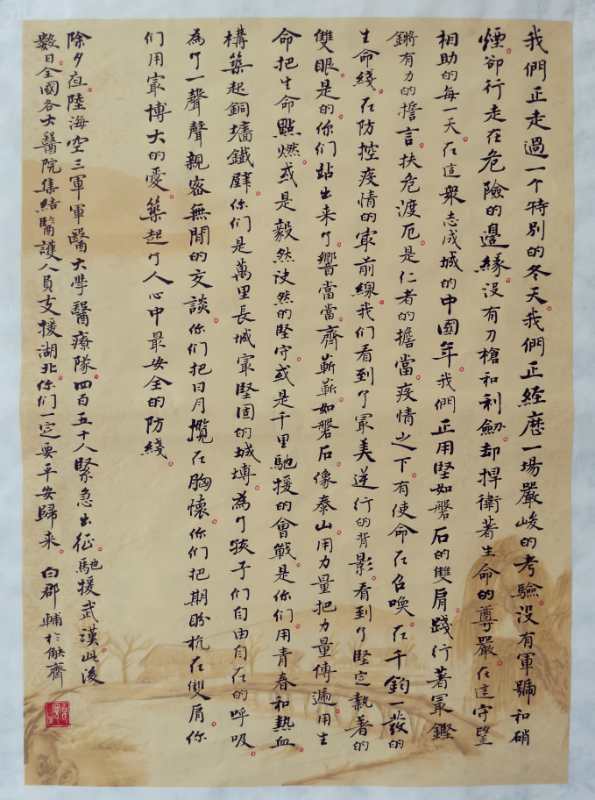 我們正走過一个特别的冬天。我們正經歷一場嚴峻的考驗没有軍號和硝
煙。卻行走在危險的邊緣。没有刀槍和利劍。却捍衛著生命的尊嚴。在這守望
相助的每一天。在這衆志成城的中國年。我們正用堅如磐石的雙肩踐行著最鏗
鏘有力的誓言。扶危渡厄。是仁者的擔當。疫情之下。有使命在召唤。在千鈞一發的
生命綫。在防控疫情的最前線。我们看到了最美逆行的背影。看到了堅定執著的
雙眼。是的。你们站出来了。響當當。齊蕲蕲。如磐石。像泰山。用力量把力量傳遍。用生
命把生命點燃。或是毅然决然的堅守。或是千里馳援的會戰。是你们用青春和熱血
構築起銅墻鐵壁。你们是萬里長城最堅固的城塼。為了孩子们自由自在的呼吸。
為了一聲聲親密無間的交談。你们把日月攬在胸懷。你们把期盼扛在雙肩。你
们用最博大的愛。築起了人心中最安全的防綫。
除夕夜。陸海空三軍軍醫大學醫療隊四百五十人緊急出征。馳援武漢。此後
數日。全國各大醫院集結醫護人員支援湖北。你们一定要平安歸来。白郡輔於